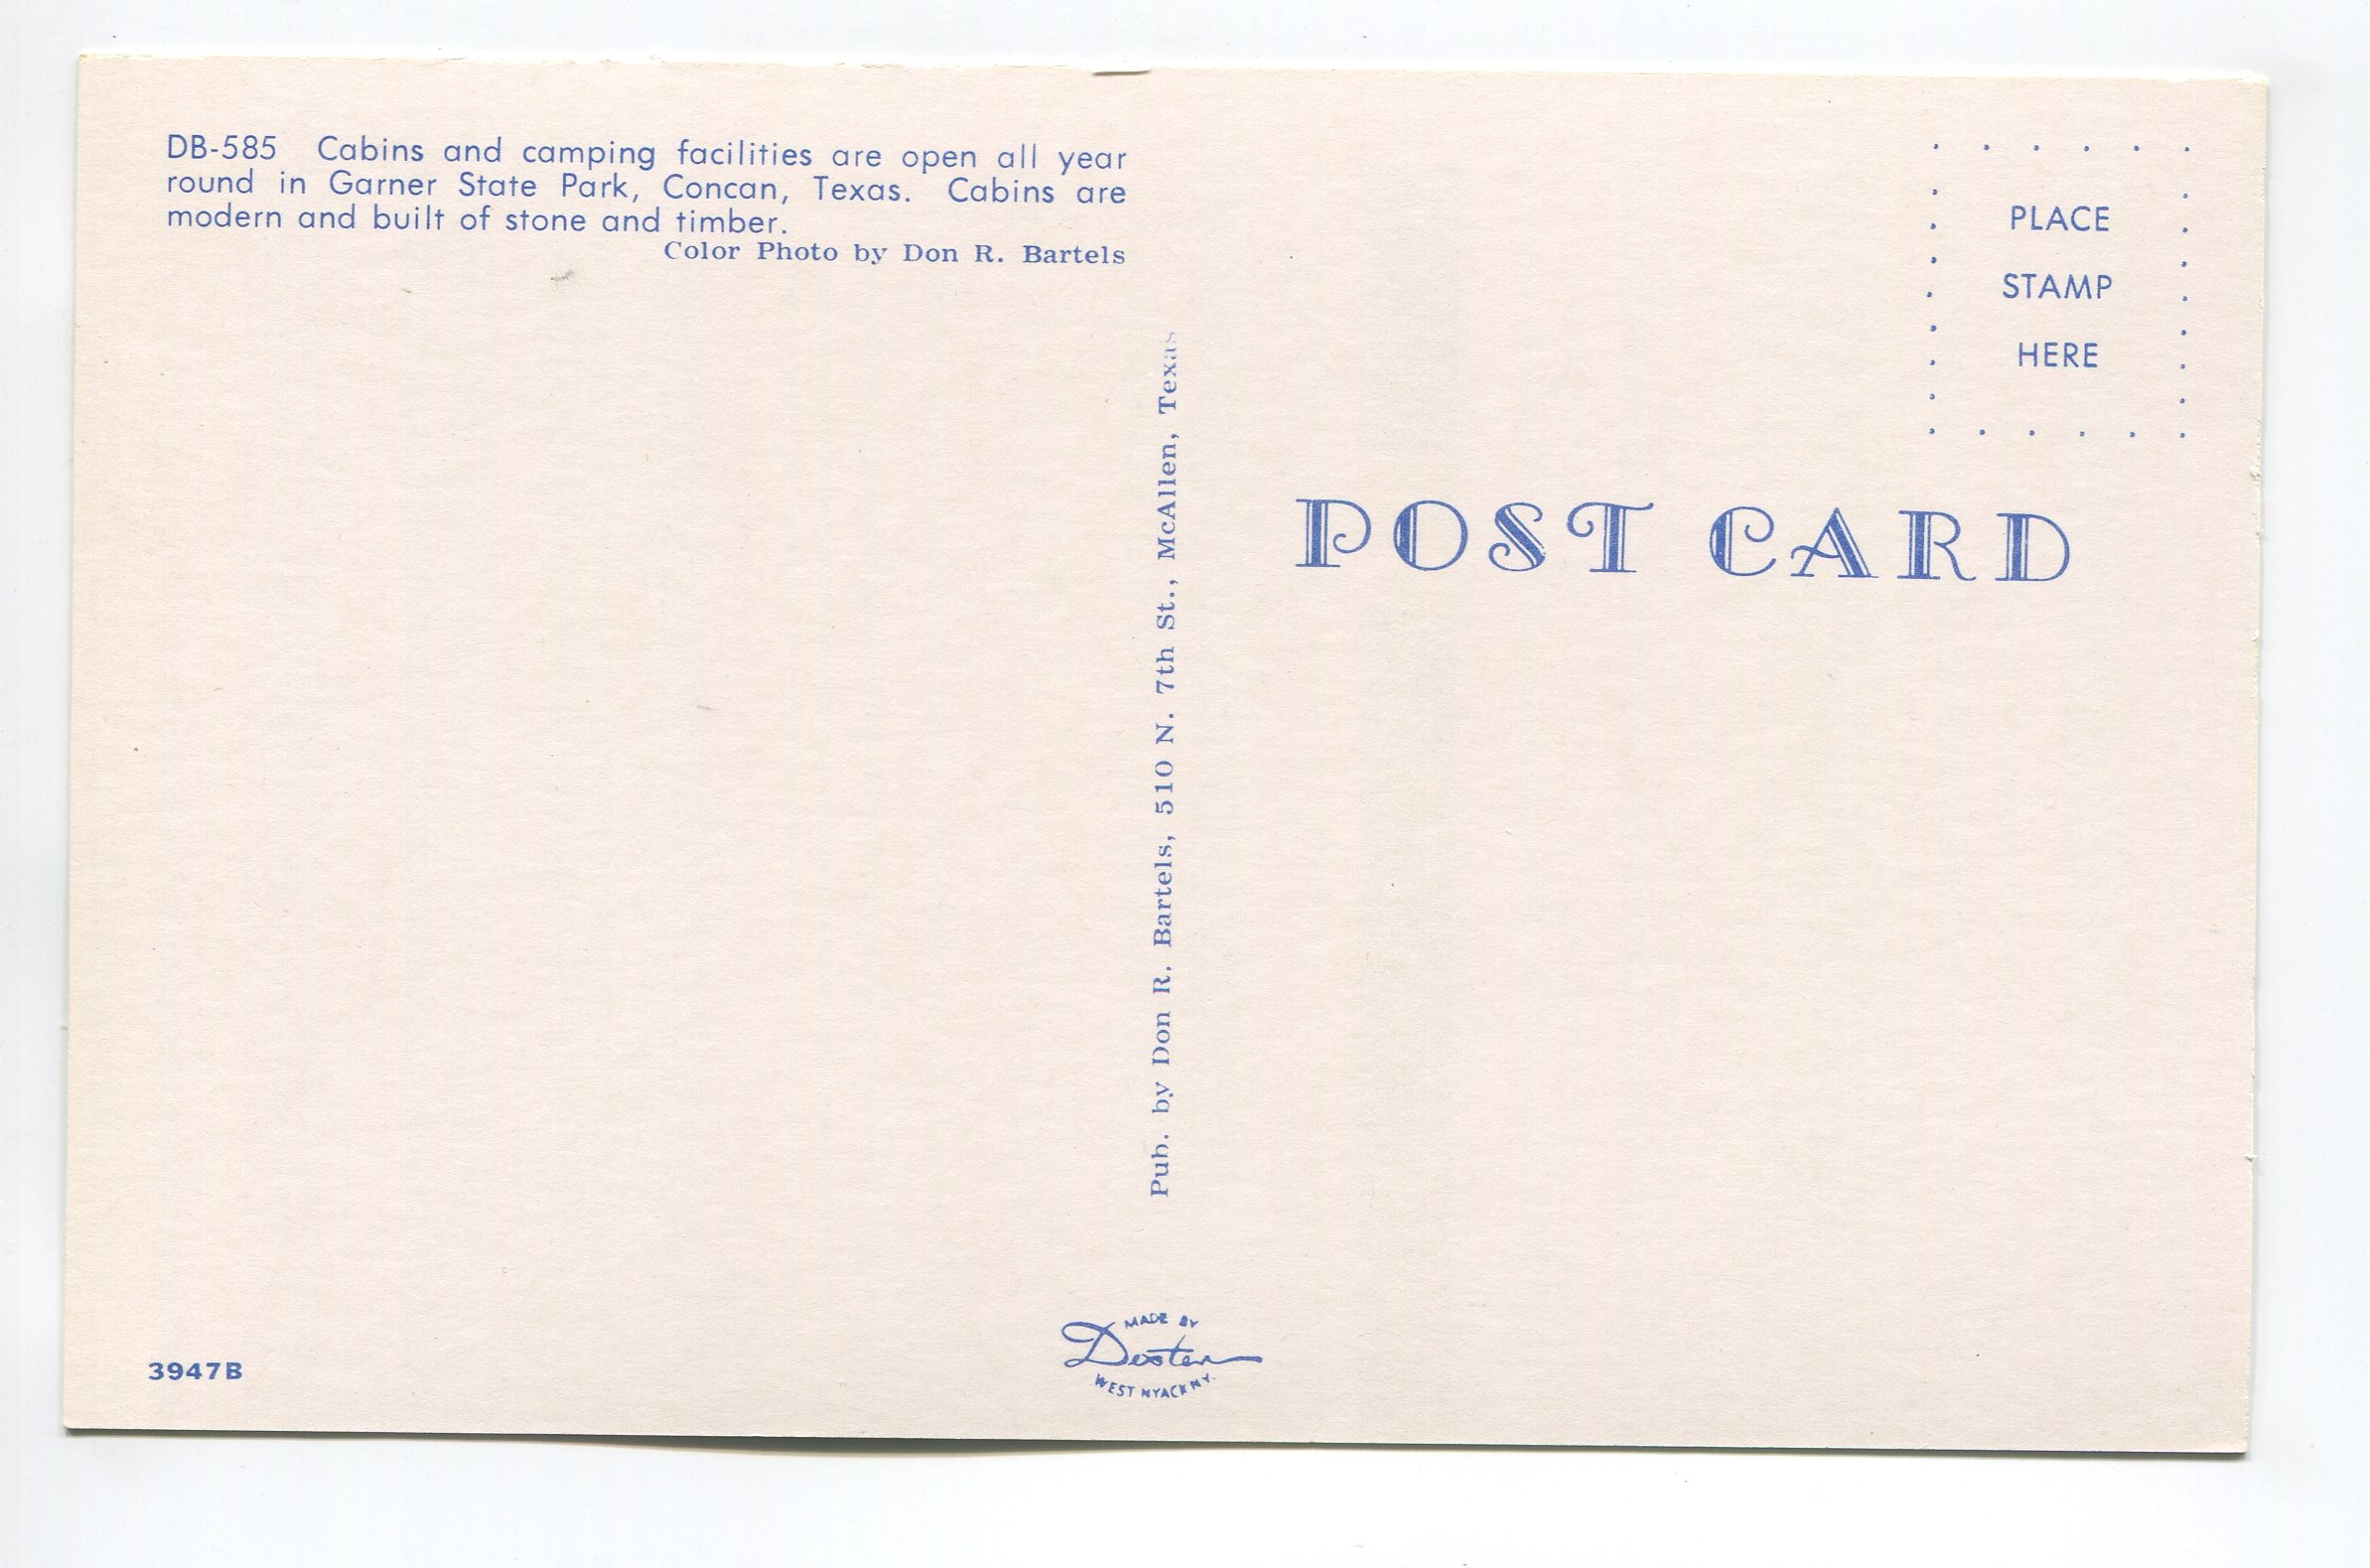 DB-585 Cabins and camping facilities are open all year
round in Garner State Park, Concan, Texas. Cabins are
modern and built of stone and timber.
Color Photo by Don R. Bartels
Pub. by Don R. Bartels, 510 N. 7th St., McAllen, Texas
PLACE
STAMP
HERE
POST CARD
MADE BY
Dexter
WEST NYACK N.Y.
3947B